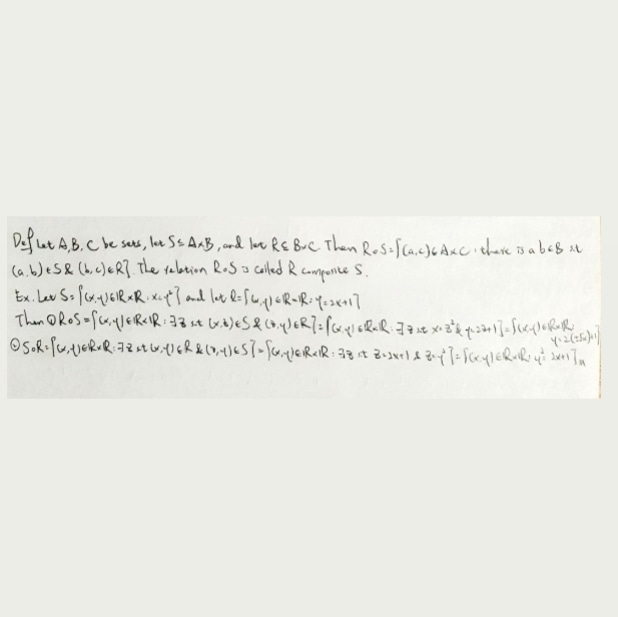 Def Let A, B, C be sets, let S⊆A×B, and let R⊆B×C. Then R∘S={(a,c)∈A×C : there is a b∈B st
(a,b)∈S & (b,c)∈R}. The relation R∘S is called R composite S.
Ex. Let S={(x,y)∈ℝ×ℝ : x=y²} and let R={(x,y)∈ℝ×ℝ : y=2x+1}
Then ① R∘S={(x,y)∈ℝ×ℝ : ∃z st (x,z)∈S & (z,y)∈R}={(x,y)∈ℝ×ℝ : ∃z st x=z² & y=2z+1}={(x,y)∈ℝ×ℝ :
y=2(±√x)+1}
② S∘R={(x,y)∈ℝ×ℝ : ∃z st (x,y)∈R & (z,y)∈S}={(x,y)∈ℝ×ℝ : ∃z st z=2x+1 & z=y²}={(x,y)∈ℝ×ℝ : y²=2x+1}